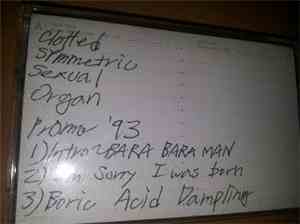 Clotted
Symmetric
Sexual
Organ
Promo '93
1) Intro~BARA BARA MAN
2) I'm Sorry I was born
3) Boric Acid Dampling